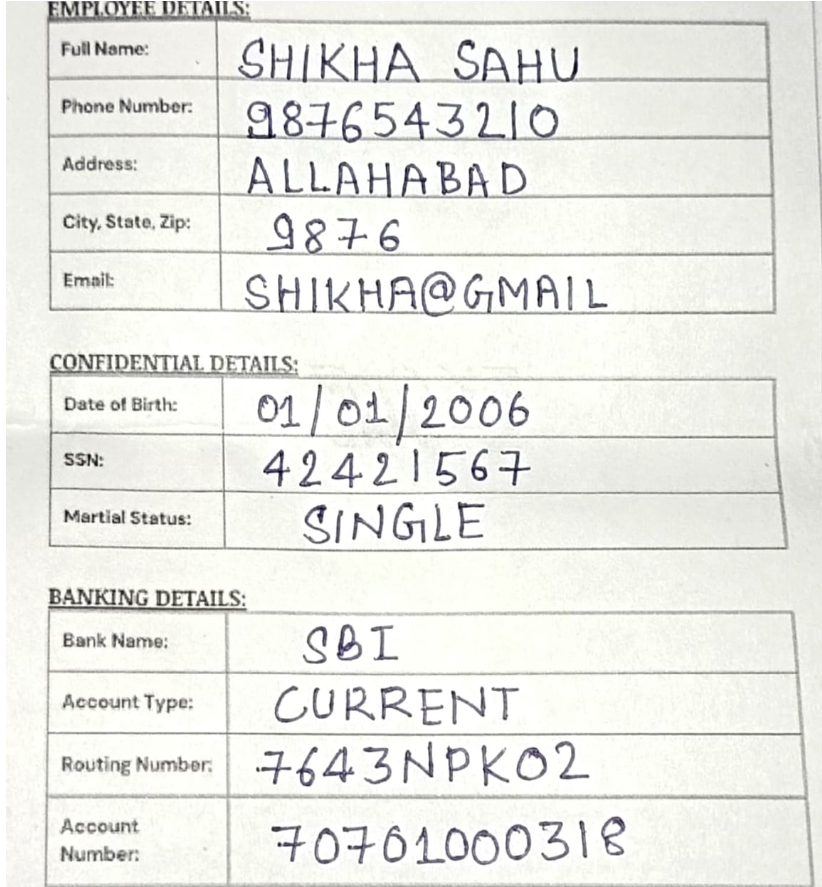 EMPLOYEE DETAILS:
Full Name: SHIKHA SAHU
Phone Number: 9876543210
Address: ALLAHABAD
City, State, Zip: 9876
Email: SHIKHA@GMAIL
CONFIDENTIAL DETAILS:
Date of Birth: 01/01/2006
SSN: 42421567
Martial Status: SINGLE
BANKING DETAILS:
Bank Name: SBI
Account Type: CURRENT
Routing Number: 7643NPK02
Account
Number: 70701000318